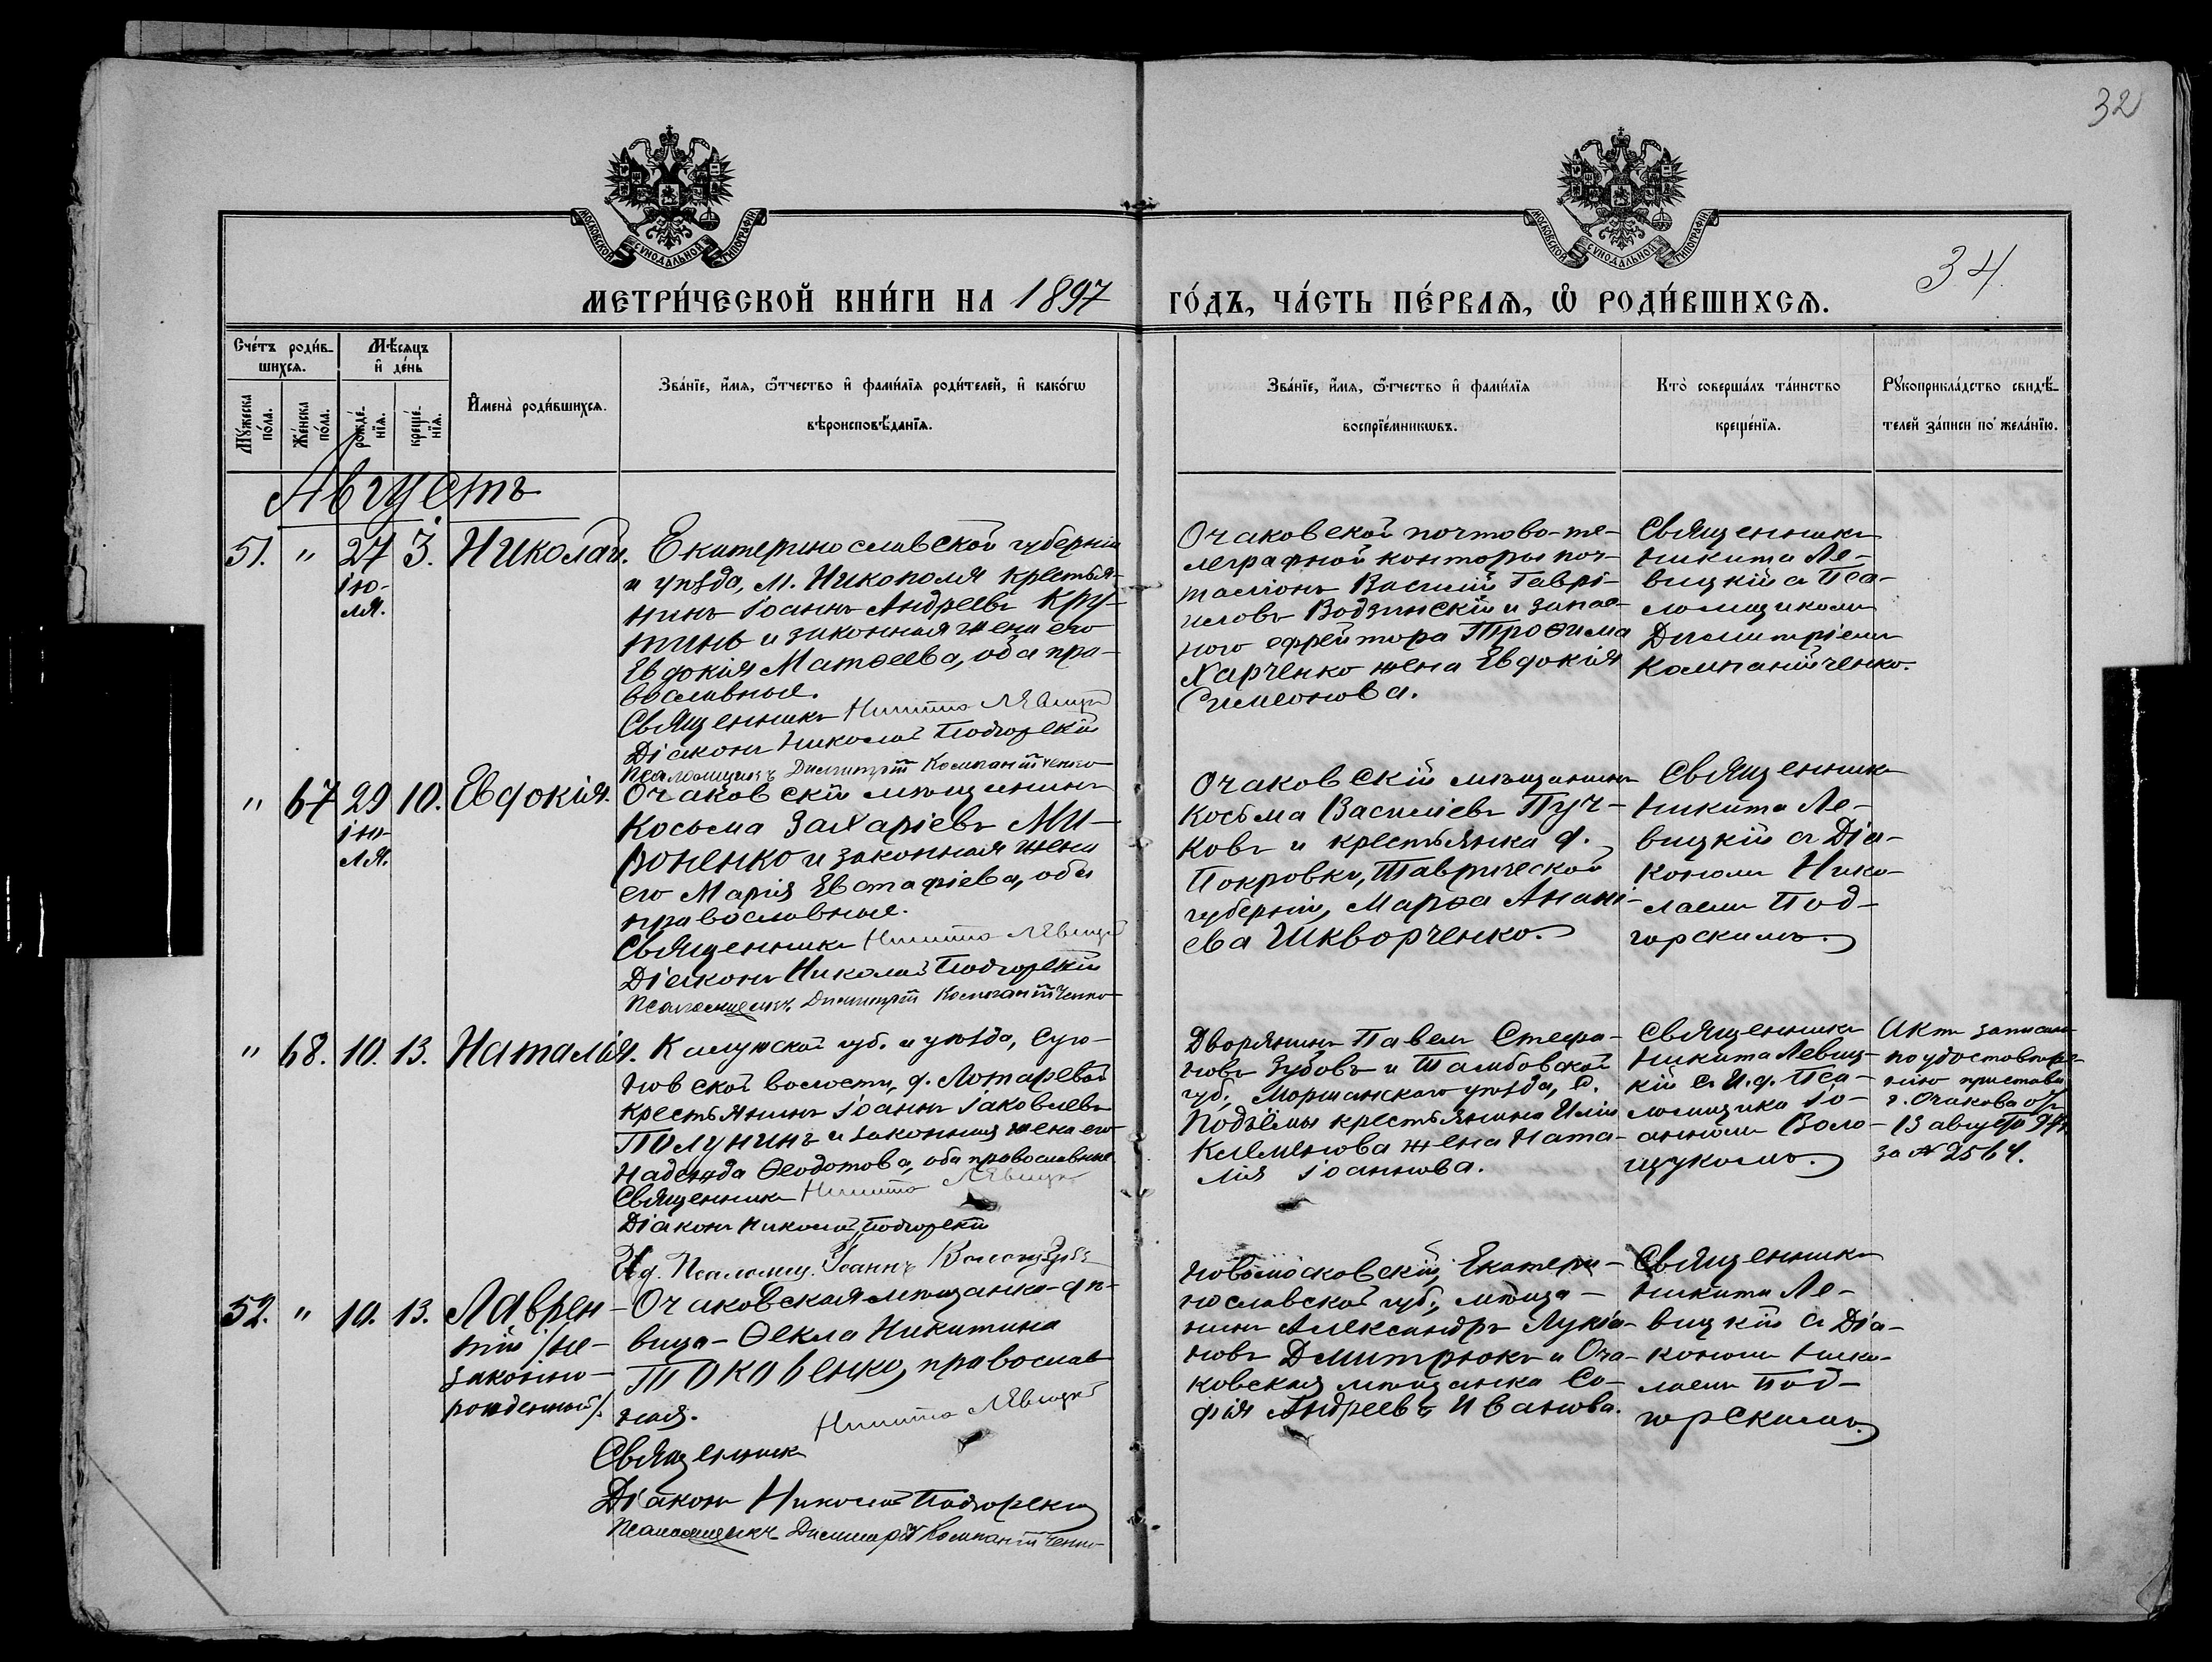 32
МОСКОВСКОЙ СУНОДАЛЬНОЙ ТИПОГРАФІИ
МОСКОВСКОЙ СУНОДАЛЬНОЙ ТИПОГРАФІИ
34.
МЕТРИ́ЧЕСКОЙ КНИ́ГИ НА 1897 ГО́ДЪ, ЧА́СТЬ ПЕ́РВАѦ, Ѡ҆ РОДИ́ВШИХСѦ.
Сче́тъ роди́в-
шихсѧ.
Мꙋ́жеска
по́ла.
Же́нска
по́ла.
Мѣ́сѧцъ
и҆ де́нь
рожде́-
нїѧ.
креще́-
нїѧ.
И҆мена̀ роди́вшихсѧ.
Зва́нїе, и҆́мѧ, ѻ҆́тчество и҆ фами́лїѧ роди́телей, и҆ како́гѡ
вѣроисповѣ́данїѧ.
Зва́нїе, и҆́мѧ, ѻ҆́тчество и҆ фами́лїѧ
воспрїе́мникѡвъ.
Кто̀ соверша́лъ та́инство
креще́нїѧ.
Рꙋкоприкла́дство свидѣ́-
телей за́писи по жела́нїю.
Августъ
51. " 27 3. Николай.
ію-
ля.
Екатеринославской губерніи
и уѣзда, м. Никополя крестья-
нинъ Іоаннъ Андреевъ Кру-
тинь и законная жена его
Евдокія Матѳеева, оба пра-
вославные.
Священникъ Никита Левицкій
Діаконъ Николай Подгорскій
Псаломщикъ Димитрій Компанійченко
Очаковской почтово-те-
леграфной конторы поч-
таліонъ Василій Гаврі-
иловъ Водзинскій и запас-
ного ефрейтора Трофима
Харченко жена Евдокія
Симеонова.
Священникъ
Никита Ле-
вицкій съ Пса-
ломщикомъ
Димитріемъ
Компанійченко.
" 67 29 10. Евдокія.
ію-
ля.
Очаковскій мѣщанинъ
Косьма Захаріевъ Ми-
роненко и законная жена
его Марія Евстафіева, оба
православные.
Священникъ Никита Левицкій
Діаконъ Николай Подгорскій
Псаломщикъ Димитрій Компанійченко
Очаковскій мѣщанинъ
Косьма Василіевъ Пуч-
ковъ и крестьянка д.
Покровки, Таврической
губерніи, Марѳа Анані-
ева Шкворченко.
Священникъ
Никита Ле-
вицкій съ Діа-
кономъ Нико-
лаемъ Под-
горскимъ.
" 68. 10. 13. Наталія.
Калужской губ. и уѣзда, Суго-
новской волости, д. Лотаревой
крестьянинъ Іоаннъ Іаковлевъ
Полунинъ и законная жена его
Надежда Ѳеодотова, оба православные
Священникъ Никита Левицкій
Діаконъ Николай Подгорскій
И.д. Псаломщ. Іоаннъ Волощукъ
Дворянинъ Павелъ Стефа-
новъ Зубовъ и Тамбовской
губ., Моршанскаго уѣзда, с.
Подъёмы крестьянина Иліи
Клеменова жена Ната-
лія Іоаннова.
Священникъ
Никита Левиц-
кій съ И.д. Пса-
ломщика Іо-
анномъ Воло-
щукомъ.
Актъ записанъ
по удостовѣре-
нію пристава
г. Очакова отъ
13 августа 97 г.
за № 2564.
52. " 10. 13. Лаврен-
тій /не-
законно-
рожденный/.
Очаковская мѣщанка-дѣ-
вица- Ѳекла Никитина
Токовенко, православ-
ная.
Священникъ Никита Левицкій
Діаконъ Николай Подгорскій
Псаломщикъ Димитрій Компанійченко
Новомосковскій, Екатери-
нославской губ., мѣща-
нинъ Александръ Лукіа-
новъ Дмитрюкъ и Оча-
ковская мѣщанка Со-
фія Андреева Иванова.
Священникъ
Никита Ле-
вицкій съ Діа-
кономъ Нико-
лаемъ Под-
горскимъ.